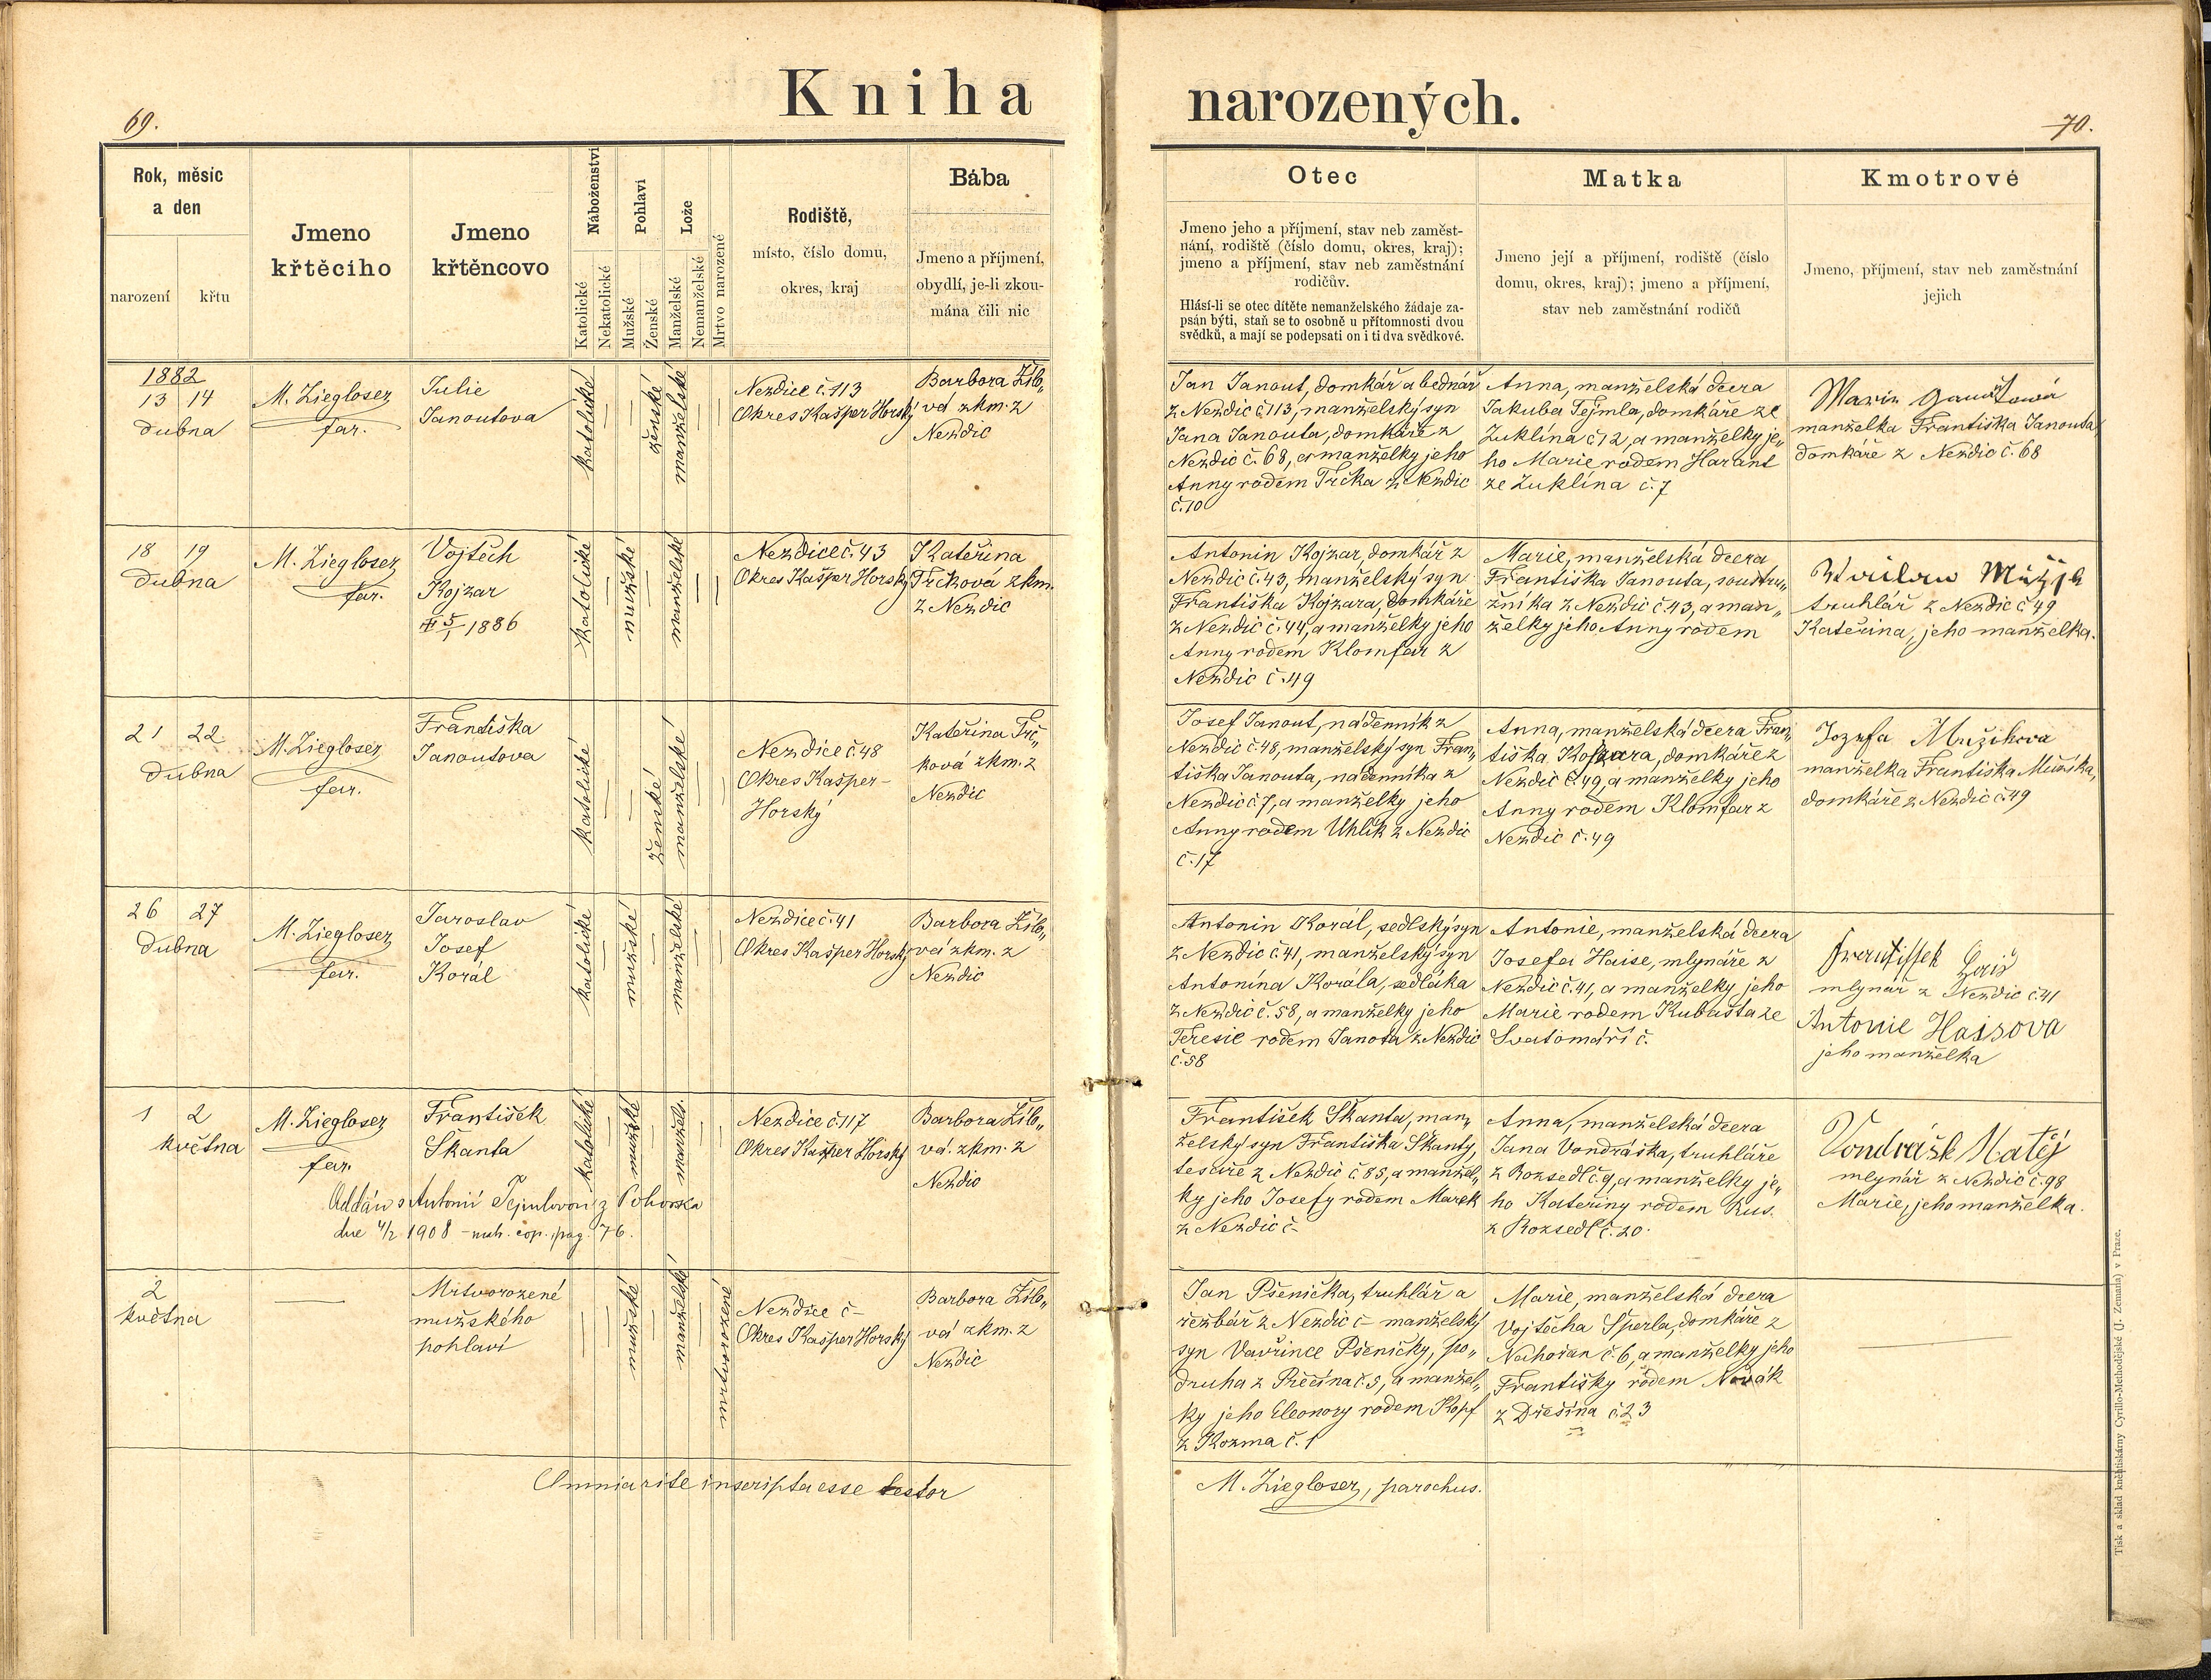 69.
Kniha narozených.
70.
Rok, měsíc
a den
narození
křtu
Jmeno
křtěcího
Jmeno
křtěncovo
Náboženství
Katolické
Nekatolické
Pohlaví
Mužské
Ženské
Lože
Manželské
Nemanželské
Mrtvo narozené
Rodiště,
místo, číslo domu,
okres, kraj
Bába
Jmeno a příjmení,
obydlí, je-li zkou-
mána čili nic
Otec
Jmeno jeho a příjmení, stav neb zaměst-
nání, rodiště (číslo domu, okres, kraj);
jmeno a příjmení, stav neb zaměstnání
rodičův.
Hlásí-li se otec dítěte nemanželského žádaje za-
psán býti, staň se to osobně u přítomnosti dvou
svědků, a mají se podepsati on i ti dva svědkové.
Matka
Jmeno její a příjmení, rodiště (číslo
domu, okres, kraj); jmeno a příjmení,
stav neb zaměstnání rodičů
Kmotrové
Jmeno, příjmení, stav neb zaměstnání
jejich
1882
13 14
dubna
M. Ziegloser
far.
Julie
Janoutova
katolické
ženské
manželské
Nezdice č. 113
Okres Kašper Horský
Barbora Žlb„
vá zkm. z
Nezdic
Jan Janout, domkář a bednář
z Nezdic č 113, manželský syn
Jana Janouta, domkáře z
Nezdic č. 68, a manželky jeho
Anny rodem Trčka z Nezdic
č. 10
Anna, manželská dcera
Jakuba Tejmla, domkáře ze
Zuklína č 12, a manželky je„
ho Marie rodem Harant
ze Zuklína č. 7
manželka Františka Janouta,
domkáře z Nezdic č. 68
18 19
dubna
M. Ziegloser
far.
Vojtěch
Kojzar
5/1 1886
katolické
mužské
manželské
Nezdice č. 43
Okres Kašper Horský
Kateřina
Trčková zkm.
z Nezdic
Antonin Kojzar, domkář z
Nezdic č. 43, manželský syn
Františka Kojzara, domkáře
z Nezdic č. 44, a manželky jeho
Anny rodem Klomfar z
Nezdic č. 49
Marie, manželská dcera
Františka Janouta, soustru„
žníka z Nezdic č. 43, a man„
želky jeho Anny rodem
truhlář z Nezdic č 49
Kateřina, jeho manželka.
21 22
dubna
M. Ziegloser
far.
Františka
Janoutova
katolické
ženské
manželské
Nezdice č. 48
Okres Kašper-
Horský
Kateřina Trč„
ková zkm. z
Nezdic
Josef Janout, nádenník z
Nezdic č. 48, manželský syn Fran„
tiška Janouta, nádenníka z
Nezdic č. 7, a manželky jeho
Anny rodem Uhlík z Nezdic
č. 17
Anna, manželská dcera Fran„
tiška Kojzara, domkáře z
Nezdic č. 49, a manželky jeho
Anny rodem Klomfar z
Nezdic č. 49
Jozefa Mužikova
manželka Františka Mužíka,
domkáře z Nezdic č. 49
26 27
dubna
M. Ziegloser
far.
Jaroslav
Josef
Korál
katolické
mužské
manželské
Nezdice č. 41
Okres Kašper Horský
Barbora Žlb„
vá zkm. z
Nezdic
Antonin Korál, sedlský syn
z Nezdic č. 41, manželský syn
Antonína Korála, sedláka
z Nezdic č. 58, a manželky jeho
Teresie rodem Janota z Nezdic
č. 58
Antonie, manželská dcera
Josefa Haise, mlynáře z
Nezdic č. 41, a manželky jeho
Marie rodem Kubašta ze
Svatomáří č.
mlynář z Nezdic č. 41
Antonie Haisova
jeho manželka
1 2
května
M. Ziegloser
far.
František
Škanta
katolické
mužské
manžels.
Nezdice č. 117
Okres Kašper Horský
Barbora Žlb„
vá. zkm. z
Nezdic
Oddán s Antonií Tejmlovou z Pohorska
dne 4/2 1908 – mat. cop. pag. 76.
František Škanta, man„
želský syn Františka Škanty,
tesaře z Nezdic č. 85, a manžel„
ky jeho Josefy rodem Marek
z Nezdic č –
Anna, manželská dcera
Jana Vondráška, truhláře
z Rozsedl č. 9, a manželky je„
ho Kateřiny rodem Rus.
z Rozsedl č. 20.
Vondrášk Matěj
mlynář z Nezdic č. 98
Marie, jeho manželka.
2
května
Mrtvorozené
mužského
pohlaví
mužské
manželské
mrtvorozené
Nezdice č –
Okres Kašper Horský
Barbora Žlb„
vá zkm. z
Nezdic
Jan Pšenička, truhlář a
řezbář z Nezdic č – manželský
syn Vavřince Pšeničky, po„
druha z Přečína č. 5, a manžel„
ky jeho Eleonory rodem Kopf
z Kozma č. 1
Marie, manželská dcera
Vojtěcha Šperla, domkáře z
Nahořan č. 6, a manželky jeho
Františky rodem Novák
z Dřešína č. 23
Omnia rite inscripta esse testor
M. Ziegloser, parochus.
Tisk a sklad knihtiskárny Cyrillo-Methodějské (J. Zeman) v Praze.